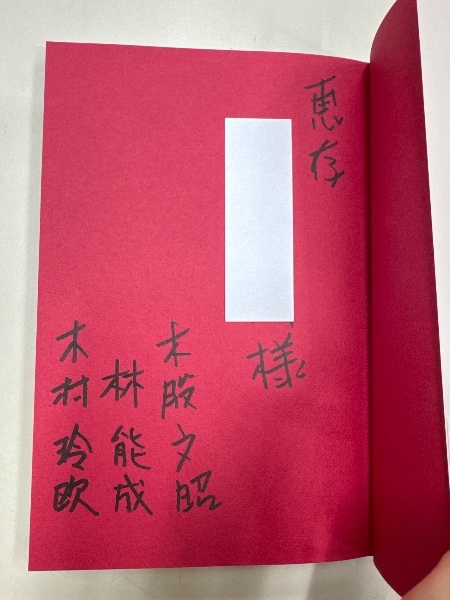 恵存
様
木股文昭
林能成
木村玲欧